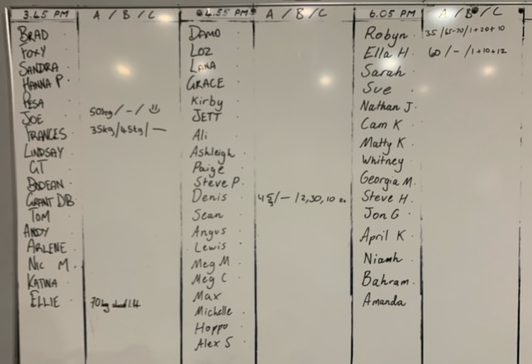 3.45 PM A / B / C
BRAD
FOXY
SANDRA
HANNA P
PESA
JOE 50kg / - /
FRANCES 35kg / 45kg / —
LINDSAY
GT
BODEAN
GRANT DB
TOM
ANDY
ARLENE
NIC M
KATINA
ELLIE 70kg
4.55 PM A / B / C
DAMO
LOZ
LANA
GRACE
Kirby
JETT
Ali
Ashleigh
Paige
Steve P.
Denis
Sean
Angus
Lewis
Meg M
Meg C
Max
Michelle
Hoppo
Alex S
6.05 PM A / B / C
Robyn 35 / 65-70 / 1+20+10
Ella H 60 / - / 1+10+12
Sarah
Sue
Nathan J
Cam K
Matty K
Whitney
Georgia M.
Steve H.
Jon G
April K
Niamh
Bahram
Amanda